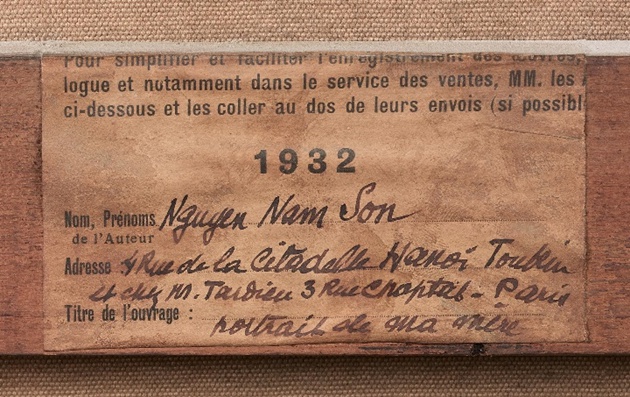 Pour simplifier et faciliter l'enregistrement des œuvres,
logue et notamment dans le service des ventes, MM. les
ci-dessous et les coller au dos de leurs envois (si possibl
1932
Nom, Prénoms Nguyen Nam Son
de l'Auteur
Adresse 4 Rue de la Citadelle Hanoï Tonkin
et chez M. Tardieu 3 Rue Chaptal - Paris
Titre de l'ouvrage :
portrait de ma mère